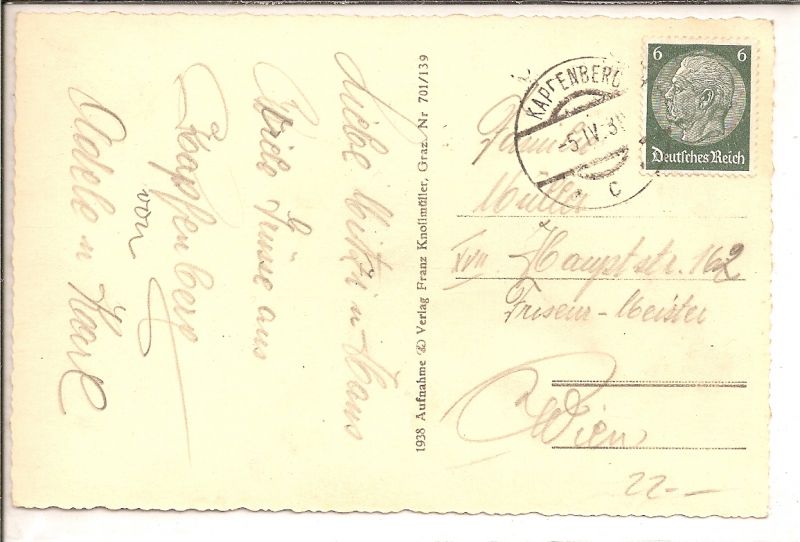 Liebe Mitzi u Hans
Viele Grüße aus
Kapfenberg
von
Adele u Karl
1938 Aufnahme & Verlag Franz Knollmüller, Graz. Nr 701/139
KAPFENBERG
-5.IV.39
c
6 6
Deutsches Reich
Familie
Müller
XVII Hauptstr. 162
Friseur-Meister
Wien
22--